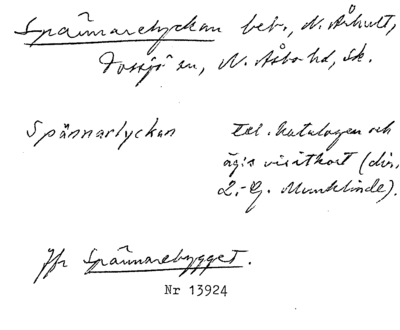 Spännarelyckan beb., N. Århult,
Tossjö sn, N. Åsbo hd, Sk.
Spännarlyckan Tel. katalogen och
äg:s visitkort (dir.
L.-G. Munklinde).
Jfr Spännarebygget.
Nr 13924